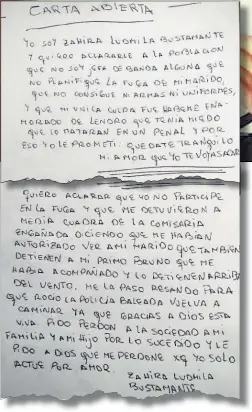 CARTA ABIERTA
YO SOY ZAHIRA LUDMILA BUSTAMANTE
Y QUIERO ACLARARLE A LA POBLACION
QUE NO SOY JEFA DE BANDA ALGUNA QUE
NO PLANIFIQUE LA FUGA DE MI MARIDO,
QUE NO CONSEGUI NI ARMAS NI UNIFORMES,
Y QUE MI UNICA CULPA FUE HABERME ENA-
MORADO DE LENDRO QUE TENIA MIEDO
QUE LO MATARAN EN UN PENAL Y POR
ESO YO LE PROMETI: QUEDATE TRANQUILO
MI AMOR QUE YO TE VOY A SACAR
QUIERO ACLARAR QUE YO NO PARTICIPE
EN LA FUGA Y QUE ME DETUVIERON A
MEDIA CUADRA DE LA COMISARIA
ENGAÑADA DICIENDO QUE ME HABIAN
AUTORIZADO VER A MI MARIDO QUE TAMBIEN
DETIENEN A MI PRIMO BRUNO QUE ME
HABIA ACOMPAÑADO Y LO DETIENEN ARRIBA
DEL VENTO. ME LA PASO REZANDO PARA
QUE ROCIO LA POLICIA BALEADA VUELVA A
CAMINAR YA QUE GRACIAS A DIOS ESTA
VIVA. PIDO PERDON A LA SOCIEDAD A MI
FAMILIA Y A MI HIJO POR LO SUCEDIDO Y LE
PIDO A DIOS QUE ME PERDONE XQ YO SOLO
ACTUE POR AMOR.
ZAHIRA LUDMILA
BUSTAMANTE